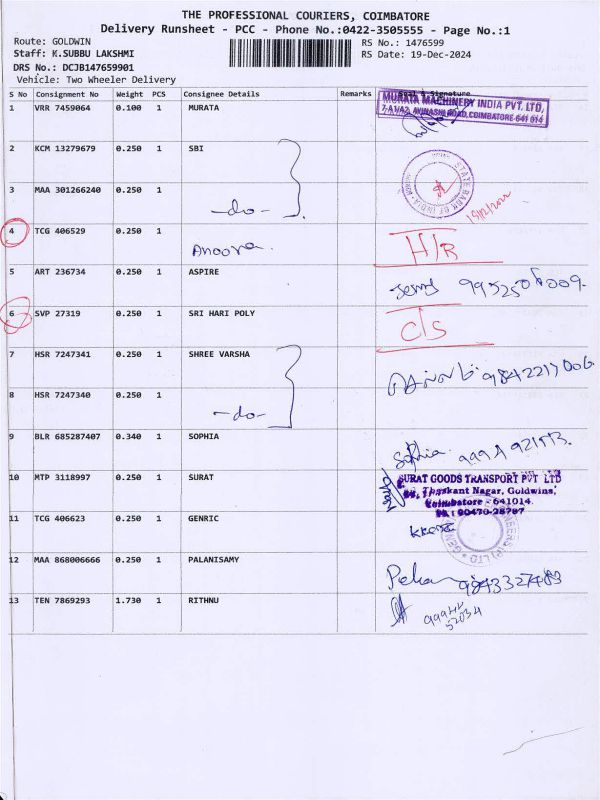 THE PROFESSIONAL COURIERS, COIMBATORE
Delivery Runsheet - PCC - Phone No.:0422-3505555 - Page No.:1
Route: GOLDWIN
RS No.: 1476599
Staff: K.SUBBU LAKSHMI
RS Date: 19-Dec-2024
DRS No.: DCJB147659901
Vehicle: Two Wheeler Delivery
S No Consignment No Weight PCS Consignee Details Remarks Seal & Signature
1 VRR 7459064 0.100 1 MURATA
MURATA MACHINERY INDIA PVT. LTD,
7-A1/A2, AVINASHI ROAD, COIMBATORE-641 014
2 KCM 13279679 0.250 1 SBI
STATE BANK OF INDIA
3 MAA 301266240 0.250 1
-do-
4 TCG 406529 0.250 1
Anoora.
H/R
5 ART 236734 0.250 1 ASPIRE
6 SVP 27319 0.250 1 SRI HARI POLY
C/S
7 HSR 7247341 0.250 1 SHREE VARSHA
8 HSR 7247340 0.250 1
-do-
9 BLR 685287407 0.340 1 SOPHIA
Sophia
10 MTP 3118997 0.250 1 SURAT
SURAT GOODS TRANSPORT PVT LTD
Nagar, Goldwins,
Coimbatore - 641014.
11 TCG 406623 0.250 1 GENRIC
12 MAA 868006666 0.250 1 PALANISAMY
13 TEN 7869293 1.730 1 RITHNU